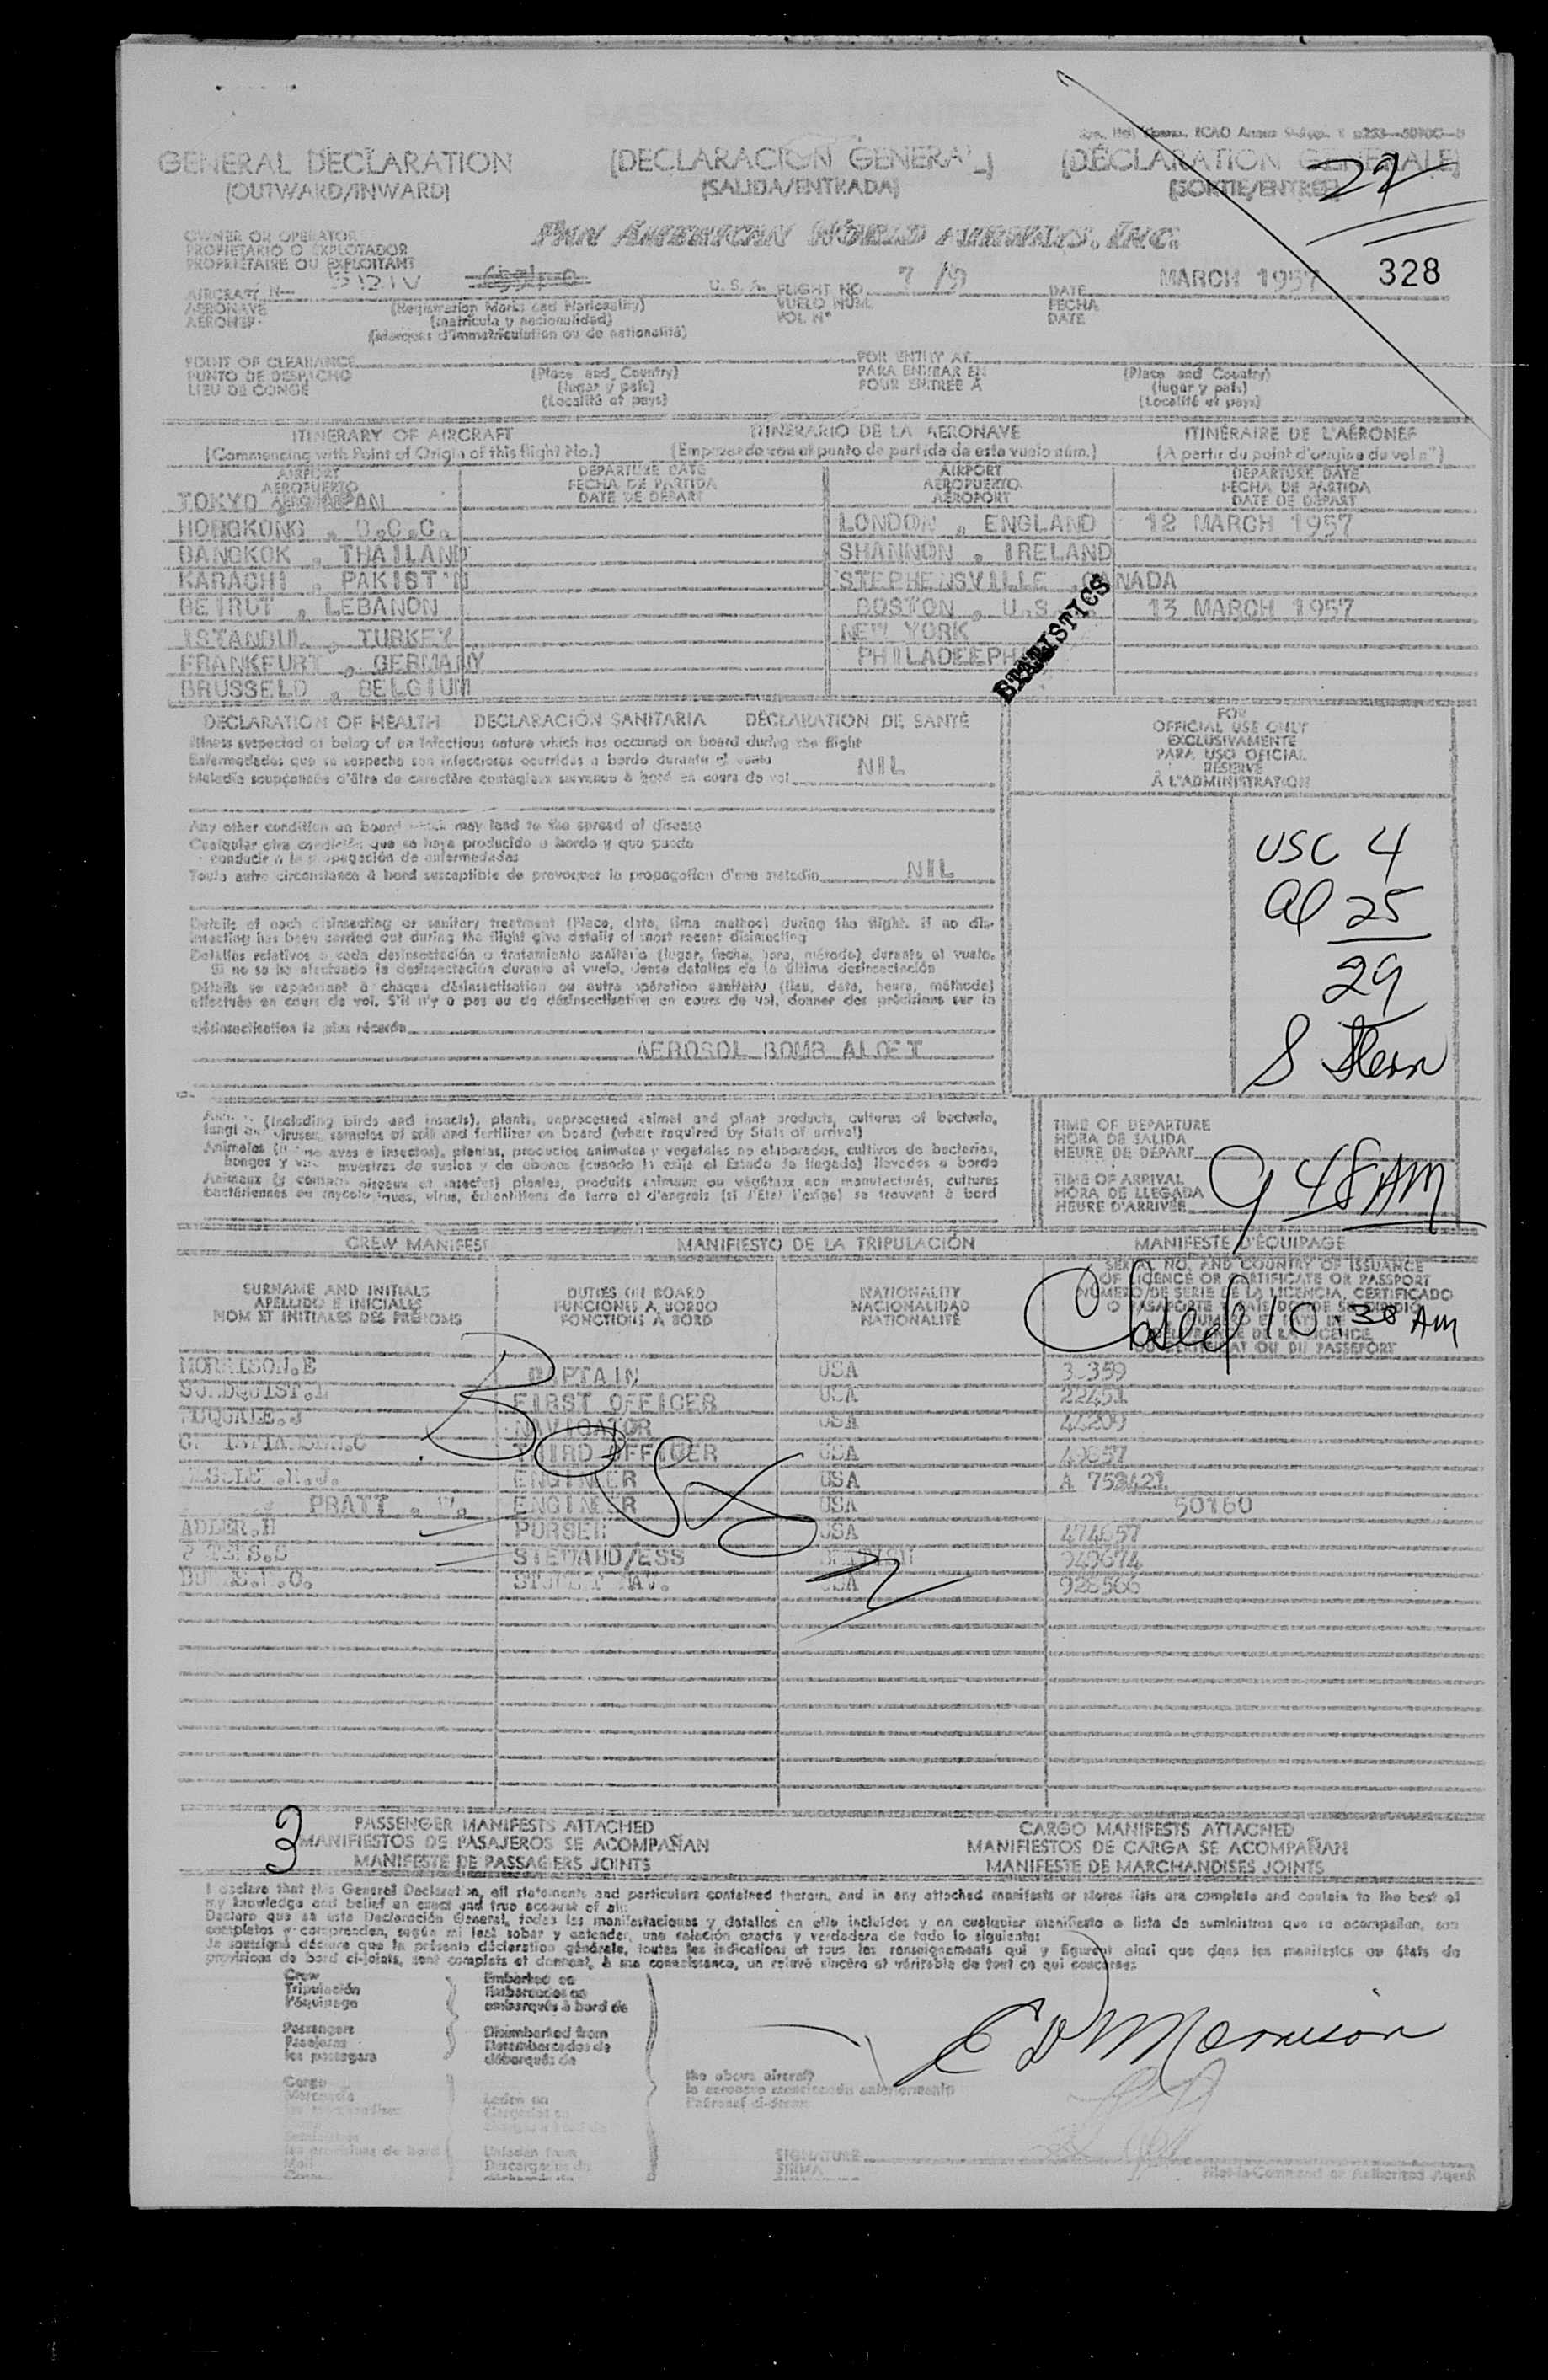 GENERAL DECLARATION (DECLARACION GENERAL) (DÉCLARATION GENERALE)
(OUTWARD/INWARD) (SALIDA/ENTRADA) (SORTIE/ENTRÉE)
PAN AMERICAN WORLD AIRWAYS, INC.
OWNER OR OPERATOR
PROPIETARIO O EXPLOTADOR
PROPRIÉTAIRE OU EXPLOITANT
328
AIRCRAFT N U.S.A. FLIGHT NO. 7 /9 DATE MARCH 1957
AERONAVE (Registration Marks and Nationality) VUELO NUM. FECHA
AERONEF (matricula y nacionalidad) VOL N° DATE
(Marques d'immatriculation ou de nationalité)
POINT OF CLEARANCE (Place and Country) FOR ENTRY AT (Place and Country)
PUNTO DE DESPACHO (lugar y país) PARA ENTRAR EN (lugar y país)
LIEU DE CONGÉ (Localité et pays) POUR ENTRÉE À (Localité et pays)
ITINERARY OF AIRCRAFT ITINERARIO DE LA AERONAVE ITINÉRAIRE DE L'AÉRONEF
(Commencing with Point of Origin of this flight No.) (Empezando con el punto de partida de este vuelo núm.) (A partir du point d'origine du vol n°)
AIRPORT DEPARTURE DATE AIRPORT DEPARTURE DATE
AEROPUERTO FECHA DE PARTIDA AEROPUERTO FECHA DE PARTIDA
DATE DE DÉPART AÉROPORT DATE DE DÉPART
TOKYO JAPAN
HONGKONG , B.C.C. LONDON , ENGLAND 12 MARCH 1957
BANGKOK , THAILAND SHANNON , IRELAND
KARACHI , PAKISTAN STEPHENSVILLE , CANADA
BEIRUT , LEBANON BOSTON , U.S. 13 MARCH 1957
ISTANBUL , TURKEY NEW YORK
FRANKFURT , GERMANY PHILADEEPH
BRUSSELD , BELGIUM
STATISTICS
DECLARATION OF HEALTH DECLARACIÓN SANITARIA DÉCLARATION DE SANTÉ
Illness suspected of being of an infectious nature which has occured on board during the flight
Enfermedades que se sospecha son infecciosas ocurridas a bordo durante el vuelo
Maladie soupçonnée d'être de caractère contagieux survenue à bord en cours de vol NIL
FOR
OFFICIAL USE ONLY
EXCLUSIVAMENTE
PARA USO OFICIAL
RÉSERVÉ
À L'ADMINISTRATION
Any other condition on board which may lead to the spread of disease
Cualquier otra condición que se haya producido a bordo y que pueda
conducir a la propagación de enfermedades
Toute autre circonstance à bord susceptible de provoquer la propagation d'une maladie NIL
USC 4
Al 25
29
S Stern
Details of each disinsecting or sanitary treatment (Place, date, time method) during the flight. If no dis-
insecting has been carried out during the flight give details of most recent disinsecting
Detalles relativos a cada desinsectación o tratamiento sanitario (lugar, fecha, hora, método) durante el vuelo.
Si no se ha efectuado la desinsectación durante el vuelo, dense detalles de la última desinsectación
Détails se rapportant à chaque désinsectisation ou autre opération sanitaire (lieu, date, heure, méthode)
effectuée en cours de vol. S'il n'y a pas eu de désinsectisation en cours de vol, donner des précisions sur la
désinsectisation la plus récente
AEROSOL BOMB ALOFT
(including birds and insects), plants, unprocessed animal and plant products, cultures of bacteria,
viruses, samples of soil and fertilizer on board (where required by State of arrival)
Animales aves e insectos), plantas, productos animales y vegetales no elaborados, cultivos de bacterias,
hongos y muestras de suelos y de abonos (cuando lo exija el Estado de llegada) llevados a bordo
Animaux oiseaux et insectes) plantes, produits animaux ou végétaux non manufacturés, cultures
bactériennes ou mycologiques, virus, échantillons de terre et d'engrais (si l'État l'exige) se trouvant à bord
TIME OF DEPARTURE
HORA DE SALIDA
HEURE DE DÉPART
TIME OF ARRIVAL
HORA DE LLEGADA
HEURE D'ARRIVÉE 9 48 AM
CREW MANIFEST MANIFIESTO DE LA TRIPULACIÓN MANIFESTE D'ÉQUIPAGE
SURNAME AND INITIALS DUTIES ON BOARD NATIONALITY SERIAL NO. AND COUNTRY OF ISSUANCE
APELLIDO E INICIALES FUNCIONES A BORDO NACIONALIDAD OF LICENCE OR CERTIFICATE OR PASSPORT
NOM ET INITIALES DES PRÉNOMS FONCTIONS À BORD NATIONALITÉ
Closed 10:30 AM
MORRISON.E CAPTAIN USA
SUNDQUIST. FIRST OFFICER USA 22451
NAVIGATOR USA 47209
THIRD OFFICER USA
ENGINEER USA
PRATT . W. ENGINEER USA 50160
ADLER.H PURSER USA 474657
STEWARD/ESS
USA 928566
Bos
3
PASSENGER MANIFESTS ATTACHED CARGO MANIFESTS ATTACHED
MANIFIESTOS DE PASAJEROS SE ACOMPAÑAN MANIFIESTOS DE CARGA SE ACOMPAÑAN
MANIFESTE DE PASSAGERS JOINTS MANIFESTE DE MARCHANDISES JOINTS
I declare that this General Declaration, all statements and particulars contained therein, and in any attached manifests or stores lists are complete and contain to the best of
my knowledge and belief an exact and true account of all:
Declaro que en esta Declaración General, todas las manifestaciones y detalles en ella incluidos y en cualquier manifiesto o lista de suministros que se acompañan, son
completos y comprenden, según mi leal saber y entender, una relación exacta y verdadera de todo lo siguiente:
Je soussigné déclare que la présente déclaration générale, toutes les indications et tous les renseignements qui y figurent ainsi que dans les manifestes ou états de
provisions de bord ci-joints, sont complets et donnent, à ma connaissance, un relevé sincère et véritable de tout ce qui concerne:
Crew Embarked on
Tripulación Embarcados en
l'équipage embarqués à bord de
Passengers Disembarked from
Pasajeros Desembarcados de
les passagers débarqués de
Cargo the above aircraft
E D Morrison
SIGNATURE
FIRMA Pilot-in-Command or Authorized Agent